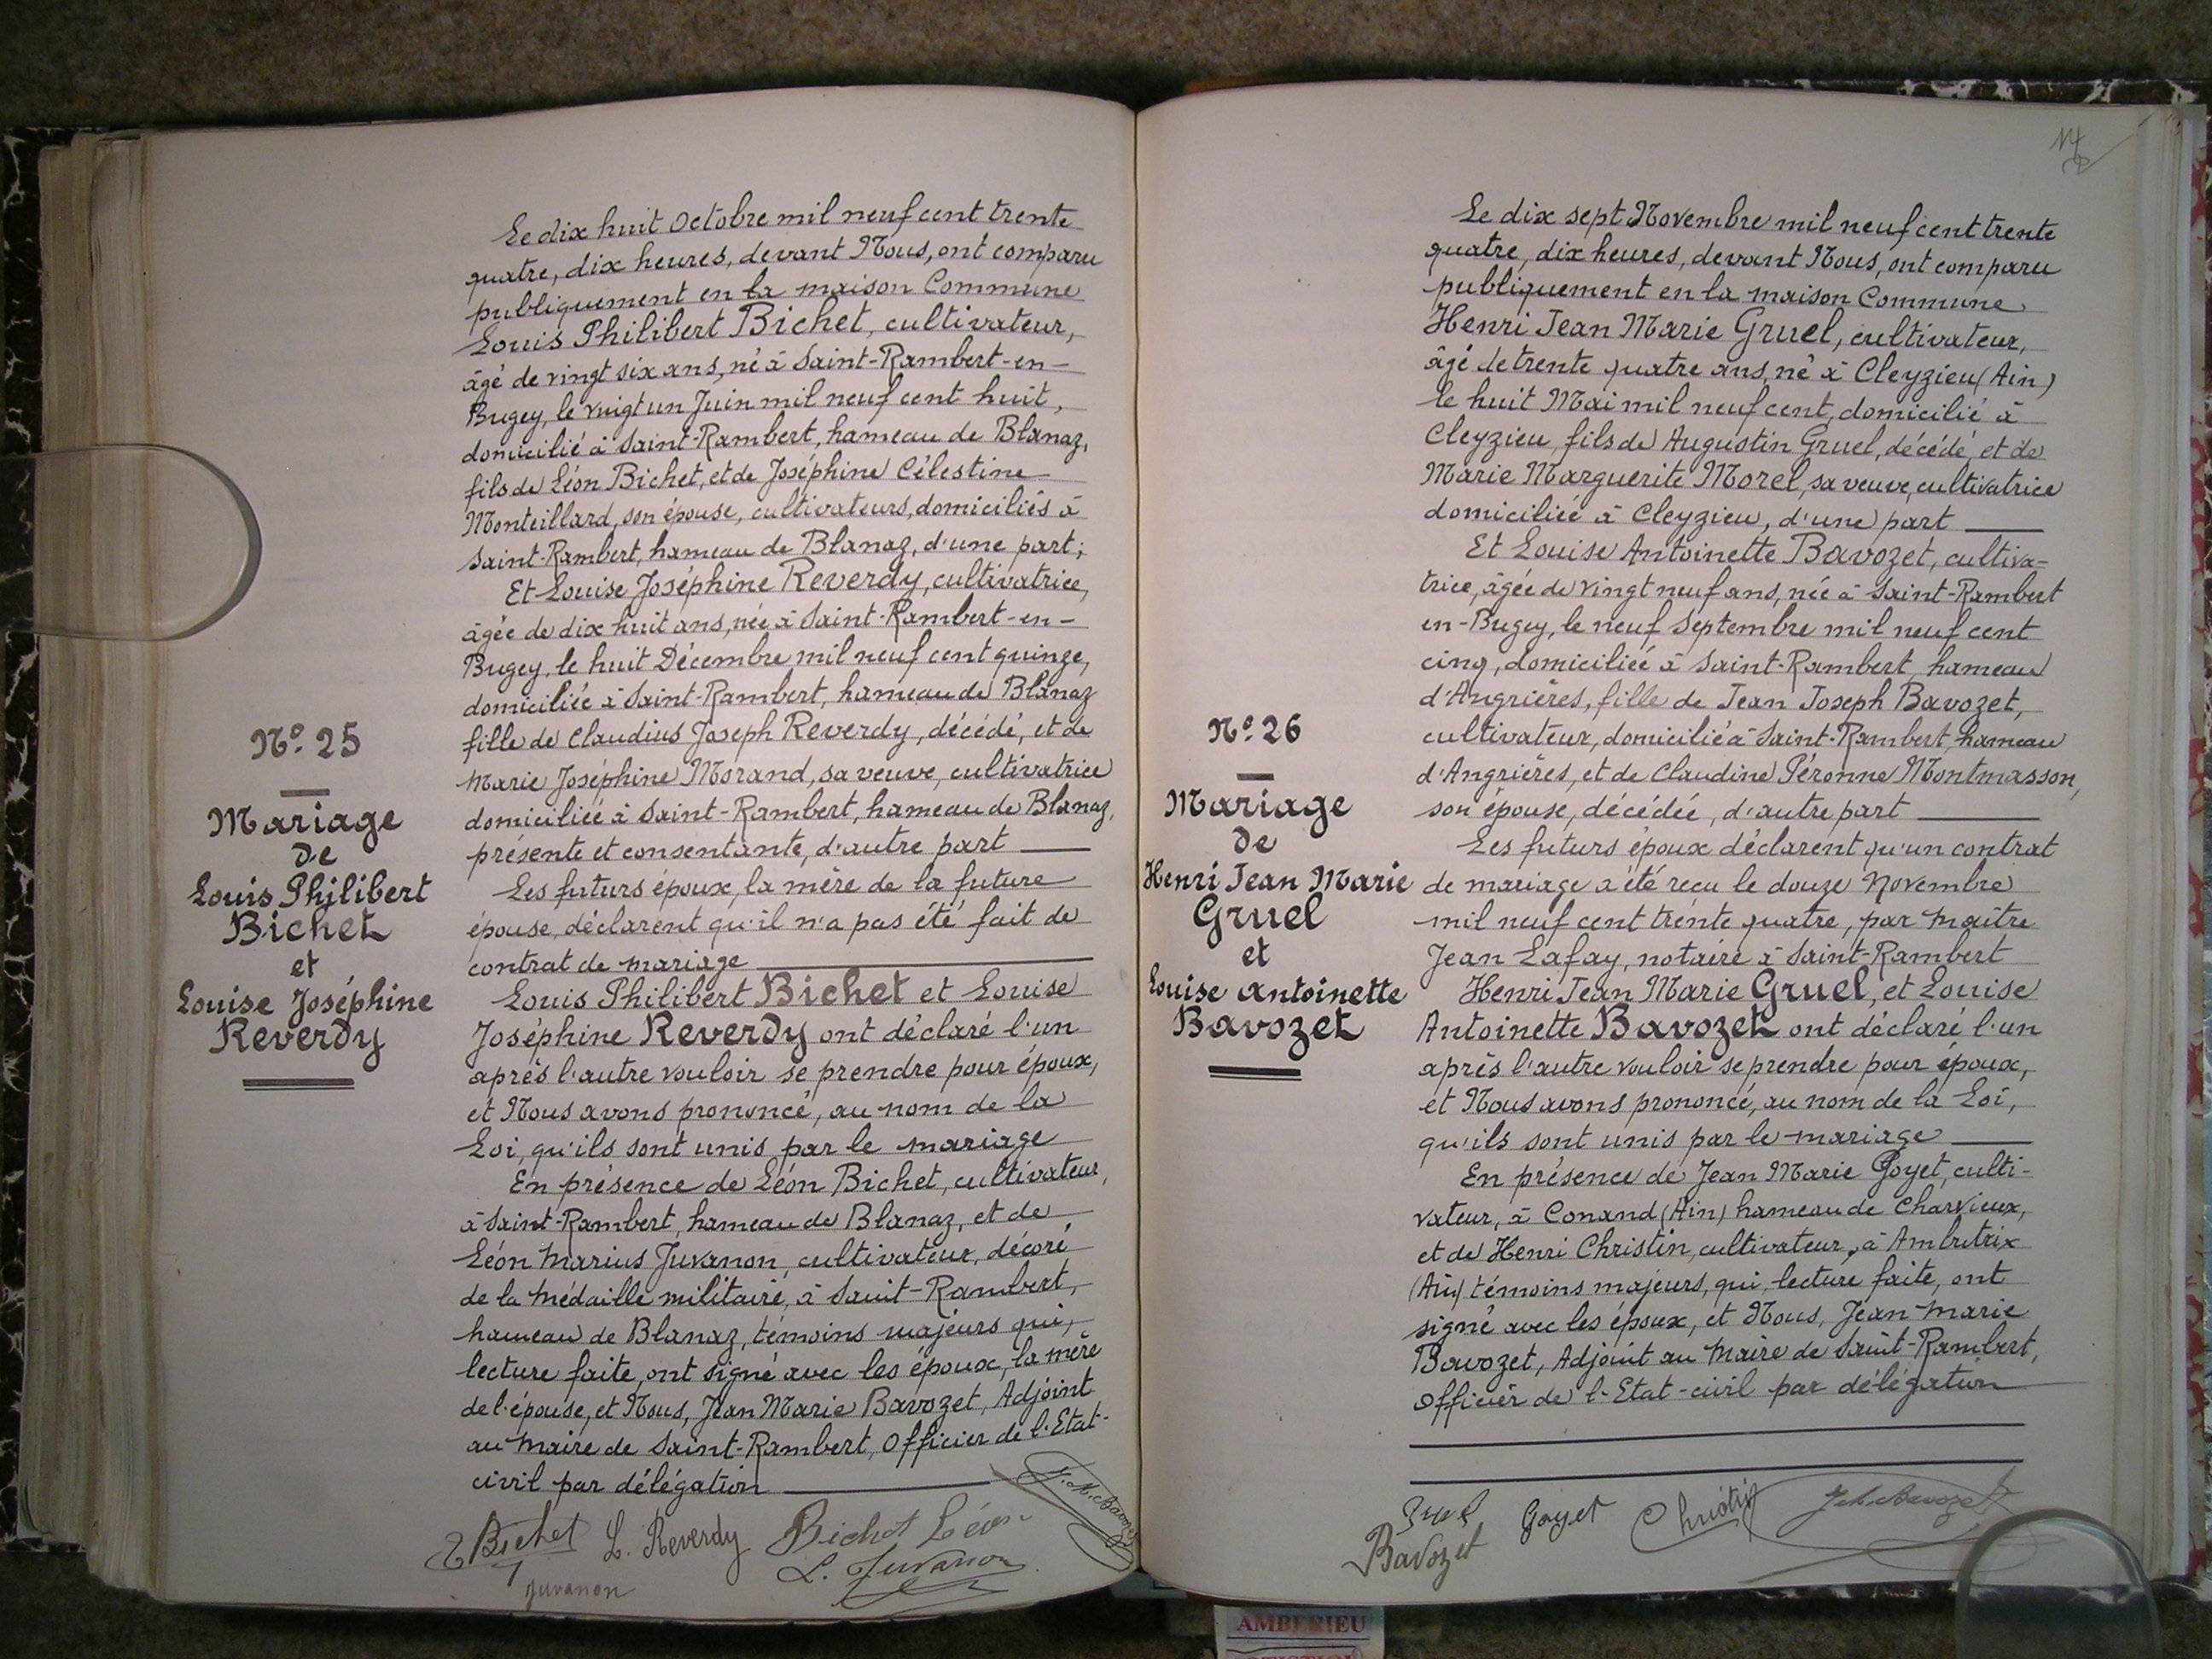 Le dix huit Octobre mil neuf cent trente
quatre, dix heures, devant Nous, ont comparu
publiquement en la maison Commune
Louis Philibert Bichet, cultivateur,
âgé de vingt six ans, né à Saint-Rambert-en-
Bugey, le vingt un Juin mil neuf cent huit,
domicilié à Saint-Rambert, hameau de Blanaz,
fils de Léon Bichet, et de Joséphine Célestine
Monteillard, son épouse, cultivateurs, domiciliés à
Saint-Rambert, hameau de Blanaz, d'une part;
Et Louise Joséphine Reverdy, cultivatrice,
âgée de dix huit ans, née à Saint-Rambert-en-
Bugey, le huit Décembre mil neuf cent quinze,
domiciliée à Saint-Rambert, hameau de Blanaz
fille de Claudius Joseph Reverdy, décédé, et de
Marie Joséphine Morand, sa veuve, cultivatrice
domiciliée à Saint-Rambert, hameau de Blanaz,
présente et consentante, d'autre part
Les futurs époux, la mère de la future
épouse, déclarent qu'il n'a pas été fait de
contrat de mariage
Louis Philibert Bichet et Louise
Joséphine Reverdy ont déclaré l'un
après l'autre vouloir se prendre pour époux,
et Nous avons prononcé, au nom de la
Loi, qu'ils sont unis par le mariage
En présence de Léon Bichet, cultivateur,
à Saint-Rambert, hameau de Blanaz, et de
Léon Marius Juvanon, cultivateur, décoré
de la Médaille militaire, à Saint-Rambert,
hameau de Blanaz, témoins majeurs qui,
lecture faite, ont signé avec les époux, la mère
de l'épouse, et Nous, Jean Marie Bavozet, Adjoint
au Maire de Saint-Rambert, Officier de l'Etat-
civil par délégation
Bichet L. Reverdy Bichet Léon J.M. Bavozet
Juvanon L. Juvanon
N° 25
Mariage
de
Louis Philibert
Bichet
et
Louise Joséphine
Reverdy
Le dix sept Novembre mil neuf cent trente
quatre, dix heures, devant Nous, ont comparu
publiquement en la maison Commune
Henri Jean Marie Gruel, cultivateur,
âgé de trente quatre ans, né à Cleyzieu (Ain)
le huit Mai mil neuf cent, domicilié à
Cleyzieu, fils de Augustin Gruel, décédé, et de
Marie Marguerite Morel, sa veuve, cultivatrice
domiciliée à Cleyzieu, d'une part
Et Louise Antoinette Bavozet, cultiva=
trice, âgée de vingt neuf ans, née à Saint-Rambert
en-Bugey, le neuf Septembre mil neuf cent
cinq, domiciliée à Saint-Rambert, hameau
d'Angrières, fille de Jean Joseph Bavozet,
cultivateur, domicilié à Saint-Rambert, hameau
d'Angrières, et de Claudine Péronne Montmasson,
son épouse, décédée, d'autre part
Les futurs époux déclarent qu'un contrat
de mariage a été reçu le douze Novembre
mil neuf cent trente quatre, par Maître
Jean Lafay, notaire à Saint-Rambert
Henri Jean Marie Gruel, et Louise
Antoinette Bavozet ont déclaré l'un
après l'autre vouloir se prendre pour époux,
et Nous avons prononcé, au nom de la Loi,
qu'ils sont unis par le mariage
En présence de Jean Marie Goyet, culti-
vateur, à Conand (Ain) hameau de Charvieux,
et de Henri Christin, cultivateur, à Ambutrix
(Ain) témoins majeurs, qui, lecture faite, ont
signé avec les époux, et Nous, Jean Marie
Bavozet, Adjoint au Maire de Saint-Rambert,
Officier de l'Etat-civil par délégation
Gruel Goyet Christin J.M. Bavozet
Bavozet
N° 26
Mariage
de
Henri Jean Marie
Gruel
et
Louise Antoinette
Bavozet
AMBERIEU